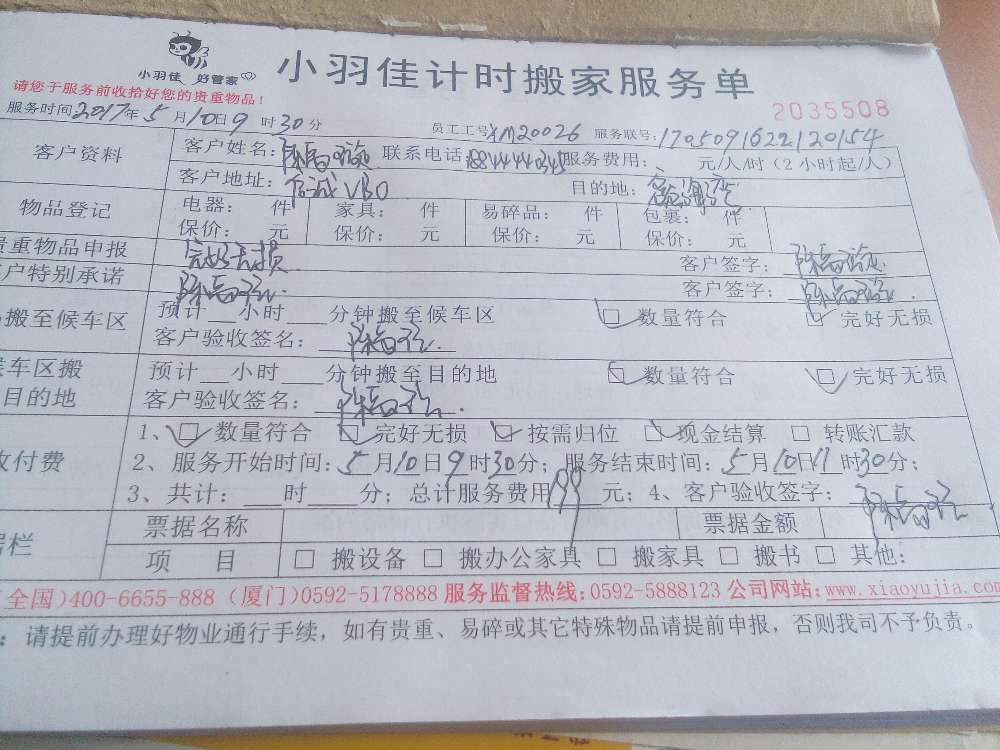 小羽佳 好管家
小羽佳计时搬家服务单
请您于服务前收拾好您的贵重物品！
2035508
服务时间2017年5月10日9时30分 员工工号XM20026 服务联号:1705091622120154
客户资料
客户姓名: 联系电话: 服务费用: 元/人/时（2小时起/人）
客户地址: 目的地:
物品登记
电器: 件 家具: 件 易碎品: 件 包裹: 件
保价: 元 保价: 元 保价: 元 保价: 元
贵重物品申报 完好无损 客户签字:
户特别承诺 客户签字:
搬至候车区
预计__小时___分钟搬至候车区 数量符合 完好无损
客户验收签名:
车区搬
目的地
预计__小时___分钟搬至目的地 数量符合 完好无损
客户验收签名:
收付费
1、数量符合 完好无损 按需归位 现金结算 □ 转账汇款
2、服务开始时间:5月10日9时30分; 服务结束时间:5月10日11时30分;
3、共计:____时____分; 总计服务费用 元; 4、客户验收签字:
据栏
票据名称 票据金额
项 目 □ 搬设备 □ 搬办公家具 □ 搬家具 □ 搬书 □ 其他:
(全国)400-6655-888 (厦门)0592-5178888 服务监督热线:0592-5888123 公司网站:www.xiaoyujia.com
：请提前办理好物业通行手续，如有贵重、易碎或其它特殊物品请提前申报，否则我司不予负责。